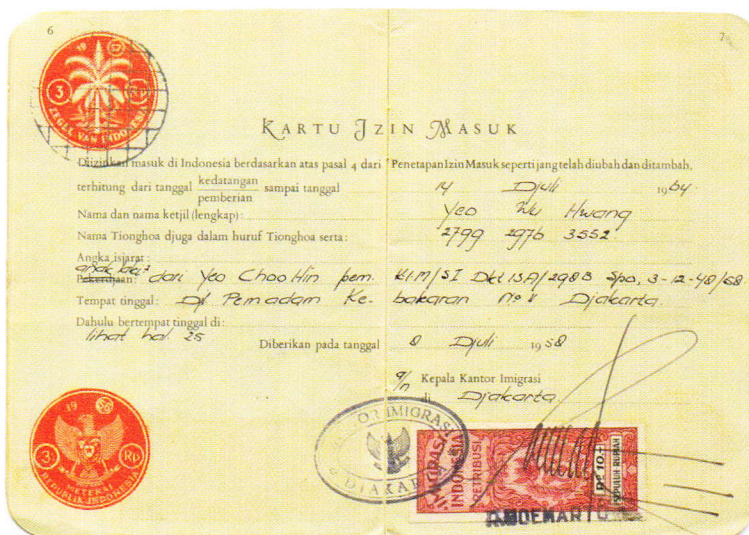 6
7
19 57
3 Rp
ZEGEL VAN INDONESIA
KARTU IZIN MASUK
Diizinkan masuk di Indonesia berdasarkan atas pasal 4 dari Penetapan Izin Masuk seperti jang telah diubah dan ditambah,
terhitung dari tanggal kedatangan/pemberian sampai tanggal 14 Djuli 1964.
Nama dan nama ketjil (lengkap): Yeo Wu Hwang
Nama Tionghoa djuga dalam huruf Tionghoa serta: 2799 2976 3552
Angka isjarat:
Pekerdjaan: anak laki² dari Yeo Choo Hin pem. KIM/SI Dkt 15A/2988 Spo, 3-12-48/68
Tempat tinggal: Dj. Pemadam Kebakaran No V Djakarta.
Dahulu bertempat tinggal di:
lihat hal. 25
Diberikan pada tanggal 8 Djuli 1958
a/n Kepala Kantor Imigrasi
di Djakarta
KANTOR IMIGRASI
DJAKARTA
19 56
3 Rp
METERAI
REPUBLIK INDONESIA
IMIGRASI
INDONESIA
RETRIBUSI
Rp 10.-
SEPULUH RUPIAH